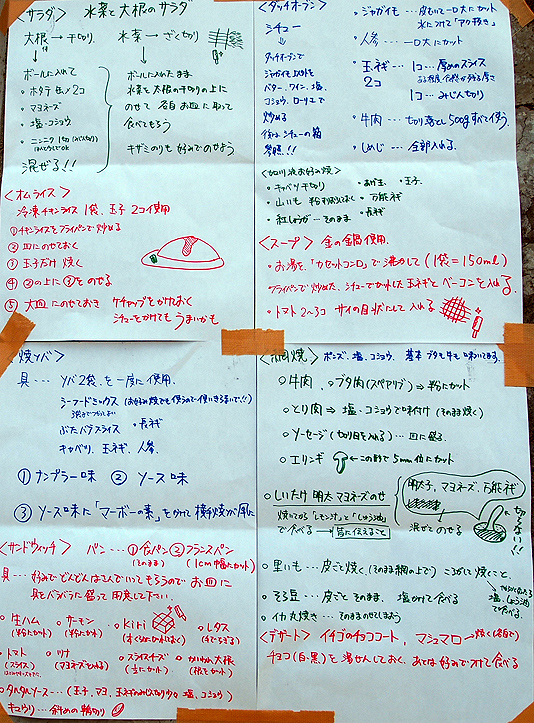 <サラダ> 水菜と大根のサラダ
大根 → 千切り 水菜 → ざく切り
ボールに入れて
・ホタテ缶×2コ
・マヨネーズ
・塩・コショウ
・ニンニク
混ぜる!!
ボールに入れたまま
水菜と大根の千切りの上に
のせて 各自お皿に取って
食べてもらう
キザミのりも好みでのせよう
<オムライス>
冷凍チキンライス1袋、玉子2コ使用
①チキンライスをフライパンで炒める
② 皿にのせておく
③ 玉子だけ焼く
④ ②の上に③をのせる
⑤ 大皿にのせておき ケチャップをかけておく
シチューをかけてもうまいかも
<ダッチオーブン>
シチュー
ダッチオーブンで
ジャガイモ以外を
バター、ワイン、塩、
コショウ、ローリエで
炒める
後はシチューの箱
参照!!
・ジャガイモ… 皮むいて一口大カット
水につけて「アク抜き」
・人参… 一口大にカット
・玉ネギ… 1コ…厚めのスライス
2コ
1コ…みじん切り
・牛肉… 切り落とし500gすべて使う
・しめじ… 全部入れる.
<加川流お好み焼>
・キャベツ千切り
・あげ玉 ・玉子.
・山いも
・万能ネギ
・紅しょうが…そのまま
・長ネギ
<スープ> 金の鍋使用.
・お湯を「カセットコンロ」で沸かして(1袋=150ml)
フライパンで炒めた、シチューでカットした玉ネギとベーコンを入れる.
・トマト2~3コ サイの目状にして入れる
<焼ソバ>
具… ソバ2袋を一度に使用.
シーフードミックス(お好み焼でも使うので使いきらないで!!)
ぶたバラスライス ・長ネギ
キャベツ、玉ネギ、人参.
① ナンプラー味 ② ソース味
③ ソース味に「マーボーの素」をかけて横手焼ソバ風に
<サンドウィッチ> パン…①食パン ②フランスパン
(そのまま) (1cm幅にカット)
具… 好みでどんどんはさんでいってもらうので お皿に
具をバラバラに盛って用意して下さい.
・生ハム ・サーモン ・Kiri ・レタス
・トマト ・ツナ ・スライスチーズ ・かいわれ大根
(スライス) (マヨネーズとあえる) (根をカット)
・タルタルソース…(玉子、マヨ、玉ネギみじん切り少々、塩、コショウ)
キュウリ…斜めの輪切り
<網焼> ポンズ、塩、コショウ、
・牛肉 ・ブタ肉(スペアリブ)
・とり肉 ⇒ 塩・コショウで味付け(そのまま焼く)
・ソーセージ(切り目を入れる)…皿に盛る.
・エリンギ ←この形で5mm位にカット
・しいたけ 明太マヨネーズのせ
焼いてから「レモン汁」と「しょう油」
で食べる → 皆に伝えること
明太子、マヨネーズ、万能ネギ
混ぜてのせる
切らない!!
・里いも… 皮ごと焼く(そのまま網の上で) ころがして焼くこと
塩、しょう油で食べる
・そら豆… 皮ごとそのまま、塩かけて食べる
・イカ丸焼き… そのままのせてしまおう
<デザート> イチゴのチョココート、マシュマロ→焼く(各自で)
チョコ(白・黒)を湯せんしておく、あとは好みでつけて食べる